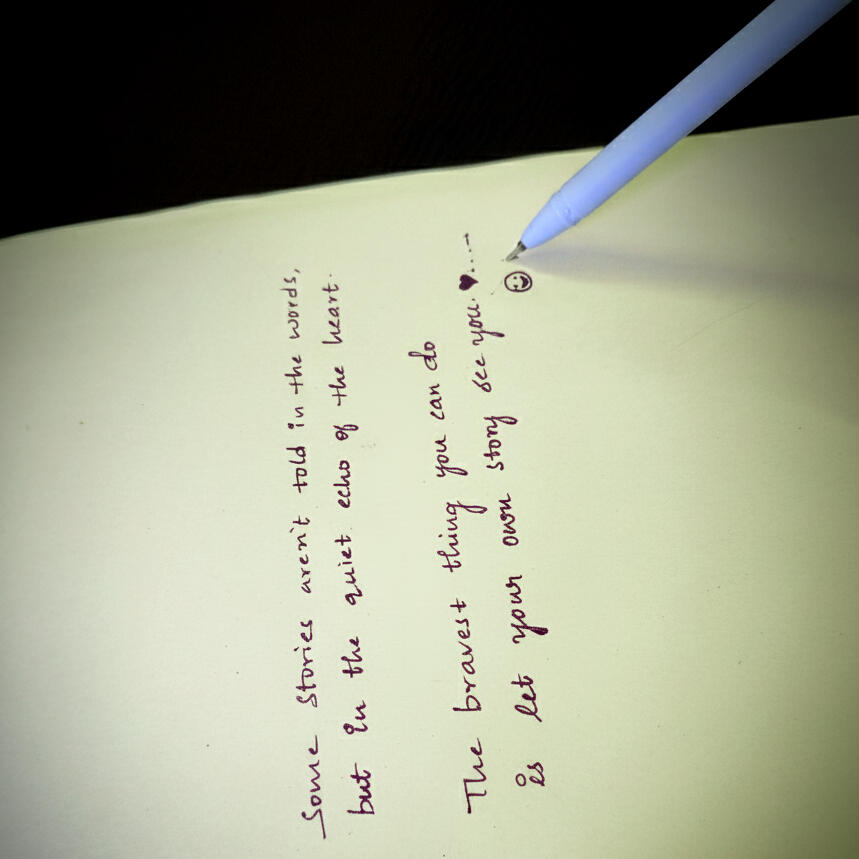 Some Stories aren't told in the words,
but in the quiet echo of the heart.
The bravest thing you can do
is let your own story see you. ♥....
☺